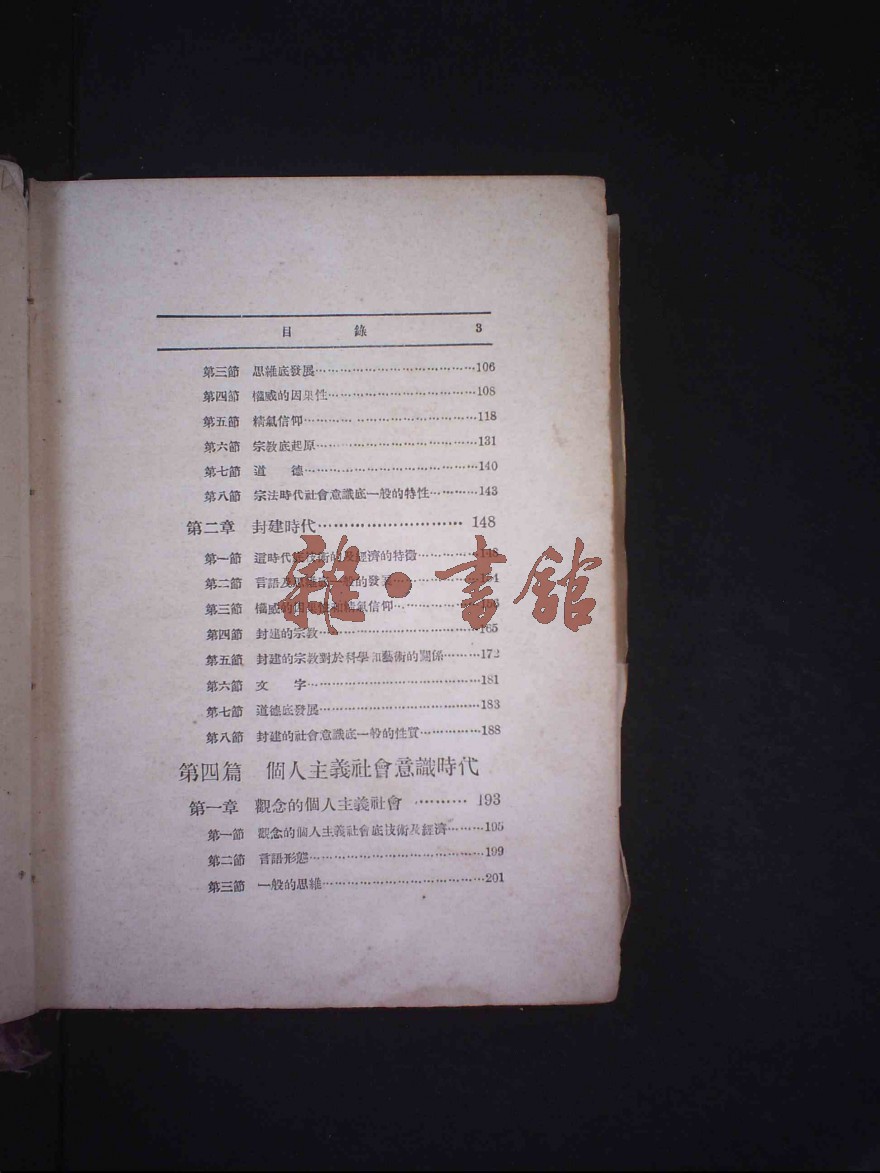 目 錄 3
第三節 思維底發展……………………………106
第四節 權威的因果性……………………………108
第五節 精氣信仰……………………………118
第六節 宗教底起原……………………………131
第七節 道 德……………………………140
第八節 宗法時代社會意識底一般的特性…………143
第二章 封建時代……………………… 148
第一節 這時代底技術的及經濟的特徵……………148
第二節 言語及思維底一般的發展……………154
第三節 權威的因果性和精氣信仰……………156
第四節 封建的宗教……………………………165
第五節 封建的宗教對於科學和藝術的關係………172
第六節 文 字……………………………181
第七節 道德底發展……………………………183
第八節 封建的社會意識底一般的性質……………188
第四篇 個人主義社會意識時代
第一章 觀念的個人主義社會 ………… 193
第一節 觀念的個人主義社會底技術及經濟………195
第二節 言語形態……………………………199
第三節 一般的思維……………………………201
雜·書館